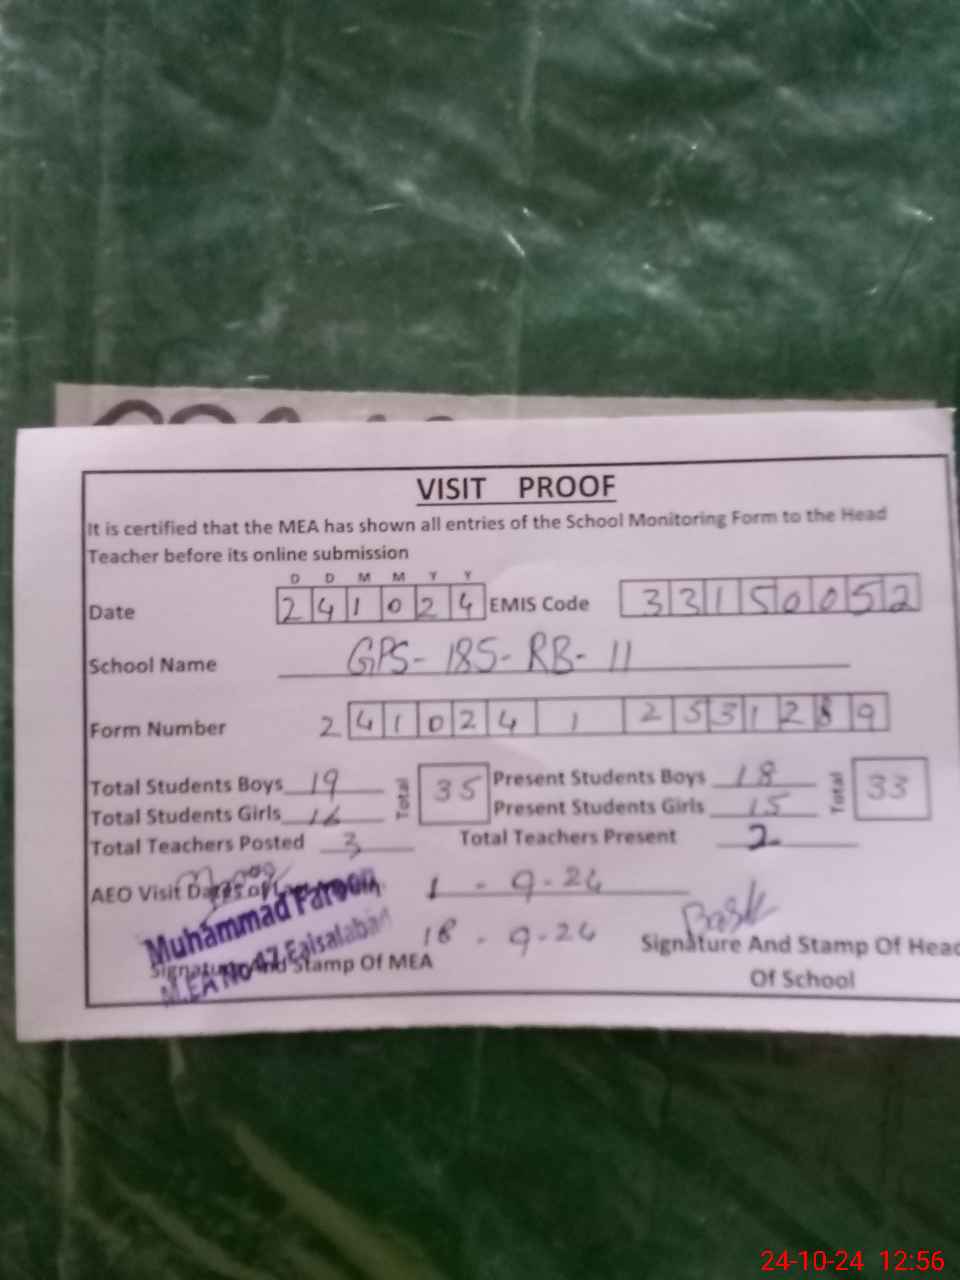 VISIT PROOF
It is certified that the MEA has shown all entries of the School Monitoring Form to the Head
Teacher before its online submission
D D M M Y Y
Date 241024 EMIS Code 33150052
School Name GPS-185-RB-11
Form Number 2 4 1 0 2 4 1 2 5 3 1 2 8 9
Total Students Boys 19 Total 35 Present Students Boys 18 Total 33
Total Students Girls 16 Present Students Girls 15
Total Teachers Posted 3 Total Teachers Present 2
AEO Visit Dates of 1 - 9-24
Muhammad Farooq
18 - 9-24
M.EA No 47, Faisalabad
Signature And Stamp Of MEA
Signature And Stamp Of Head
Of School
24-10-24 12:56